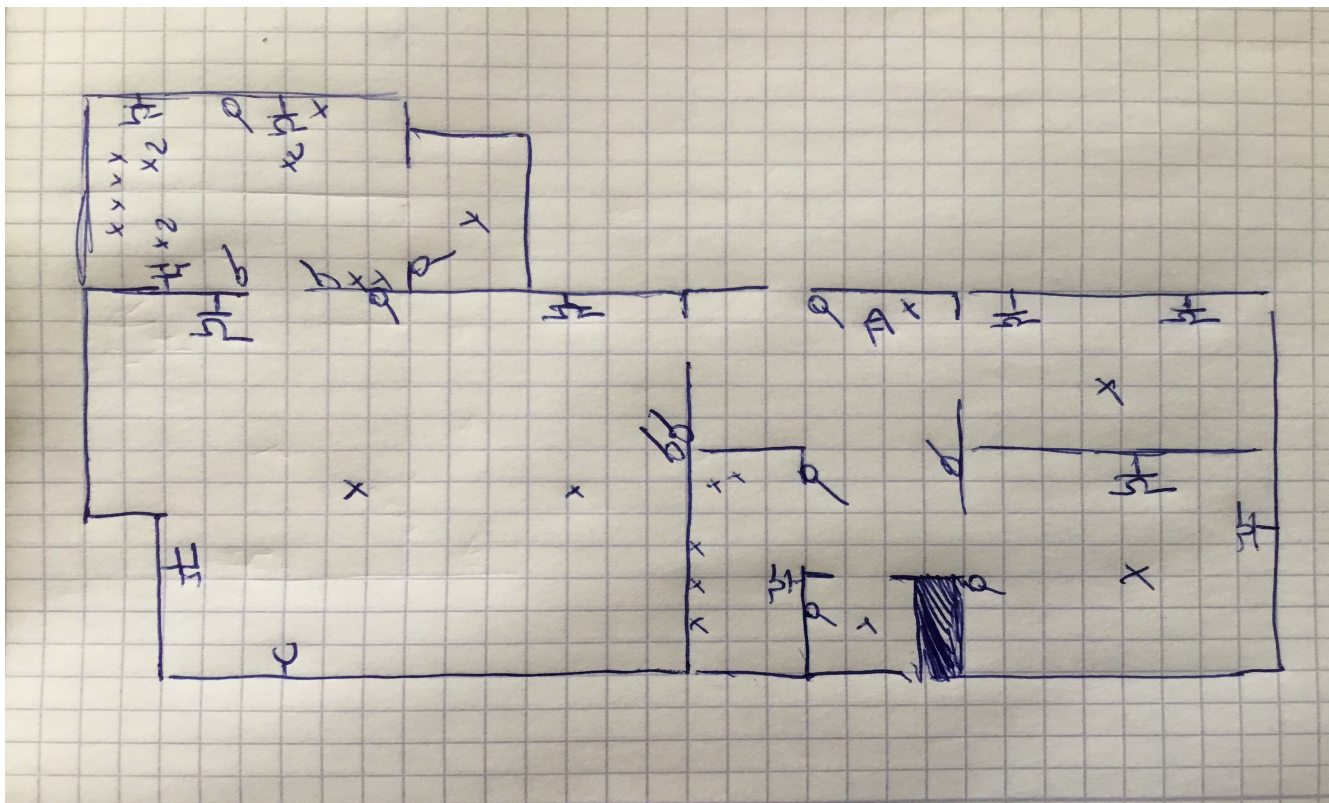 x2
x2
x2